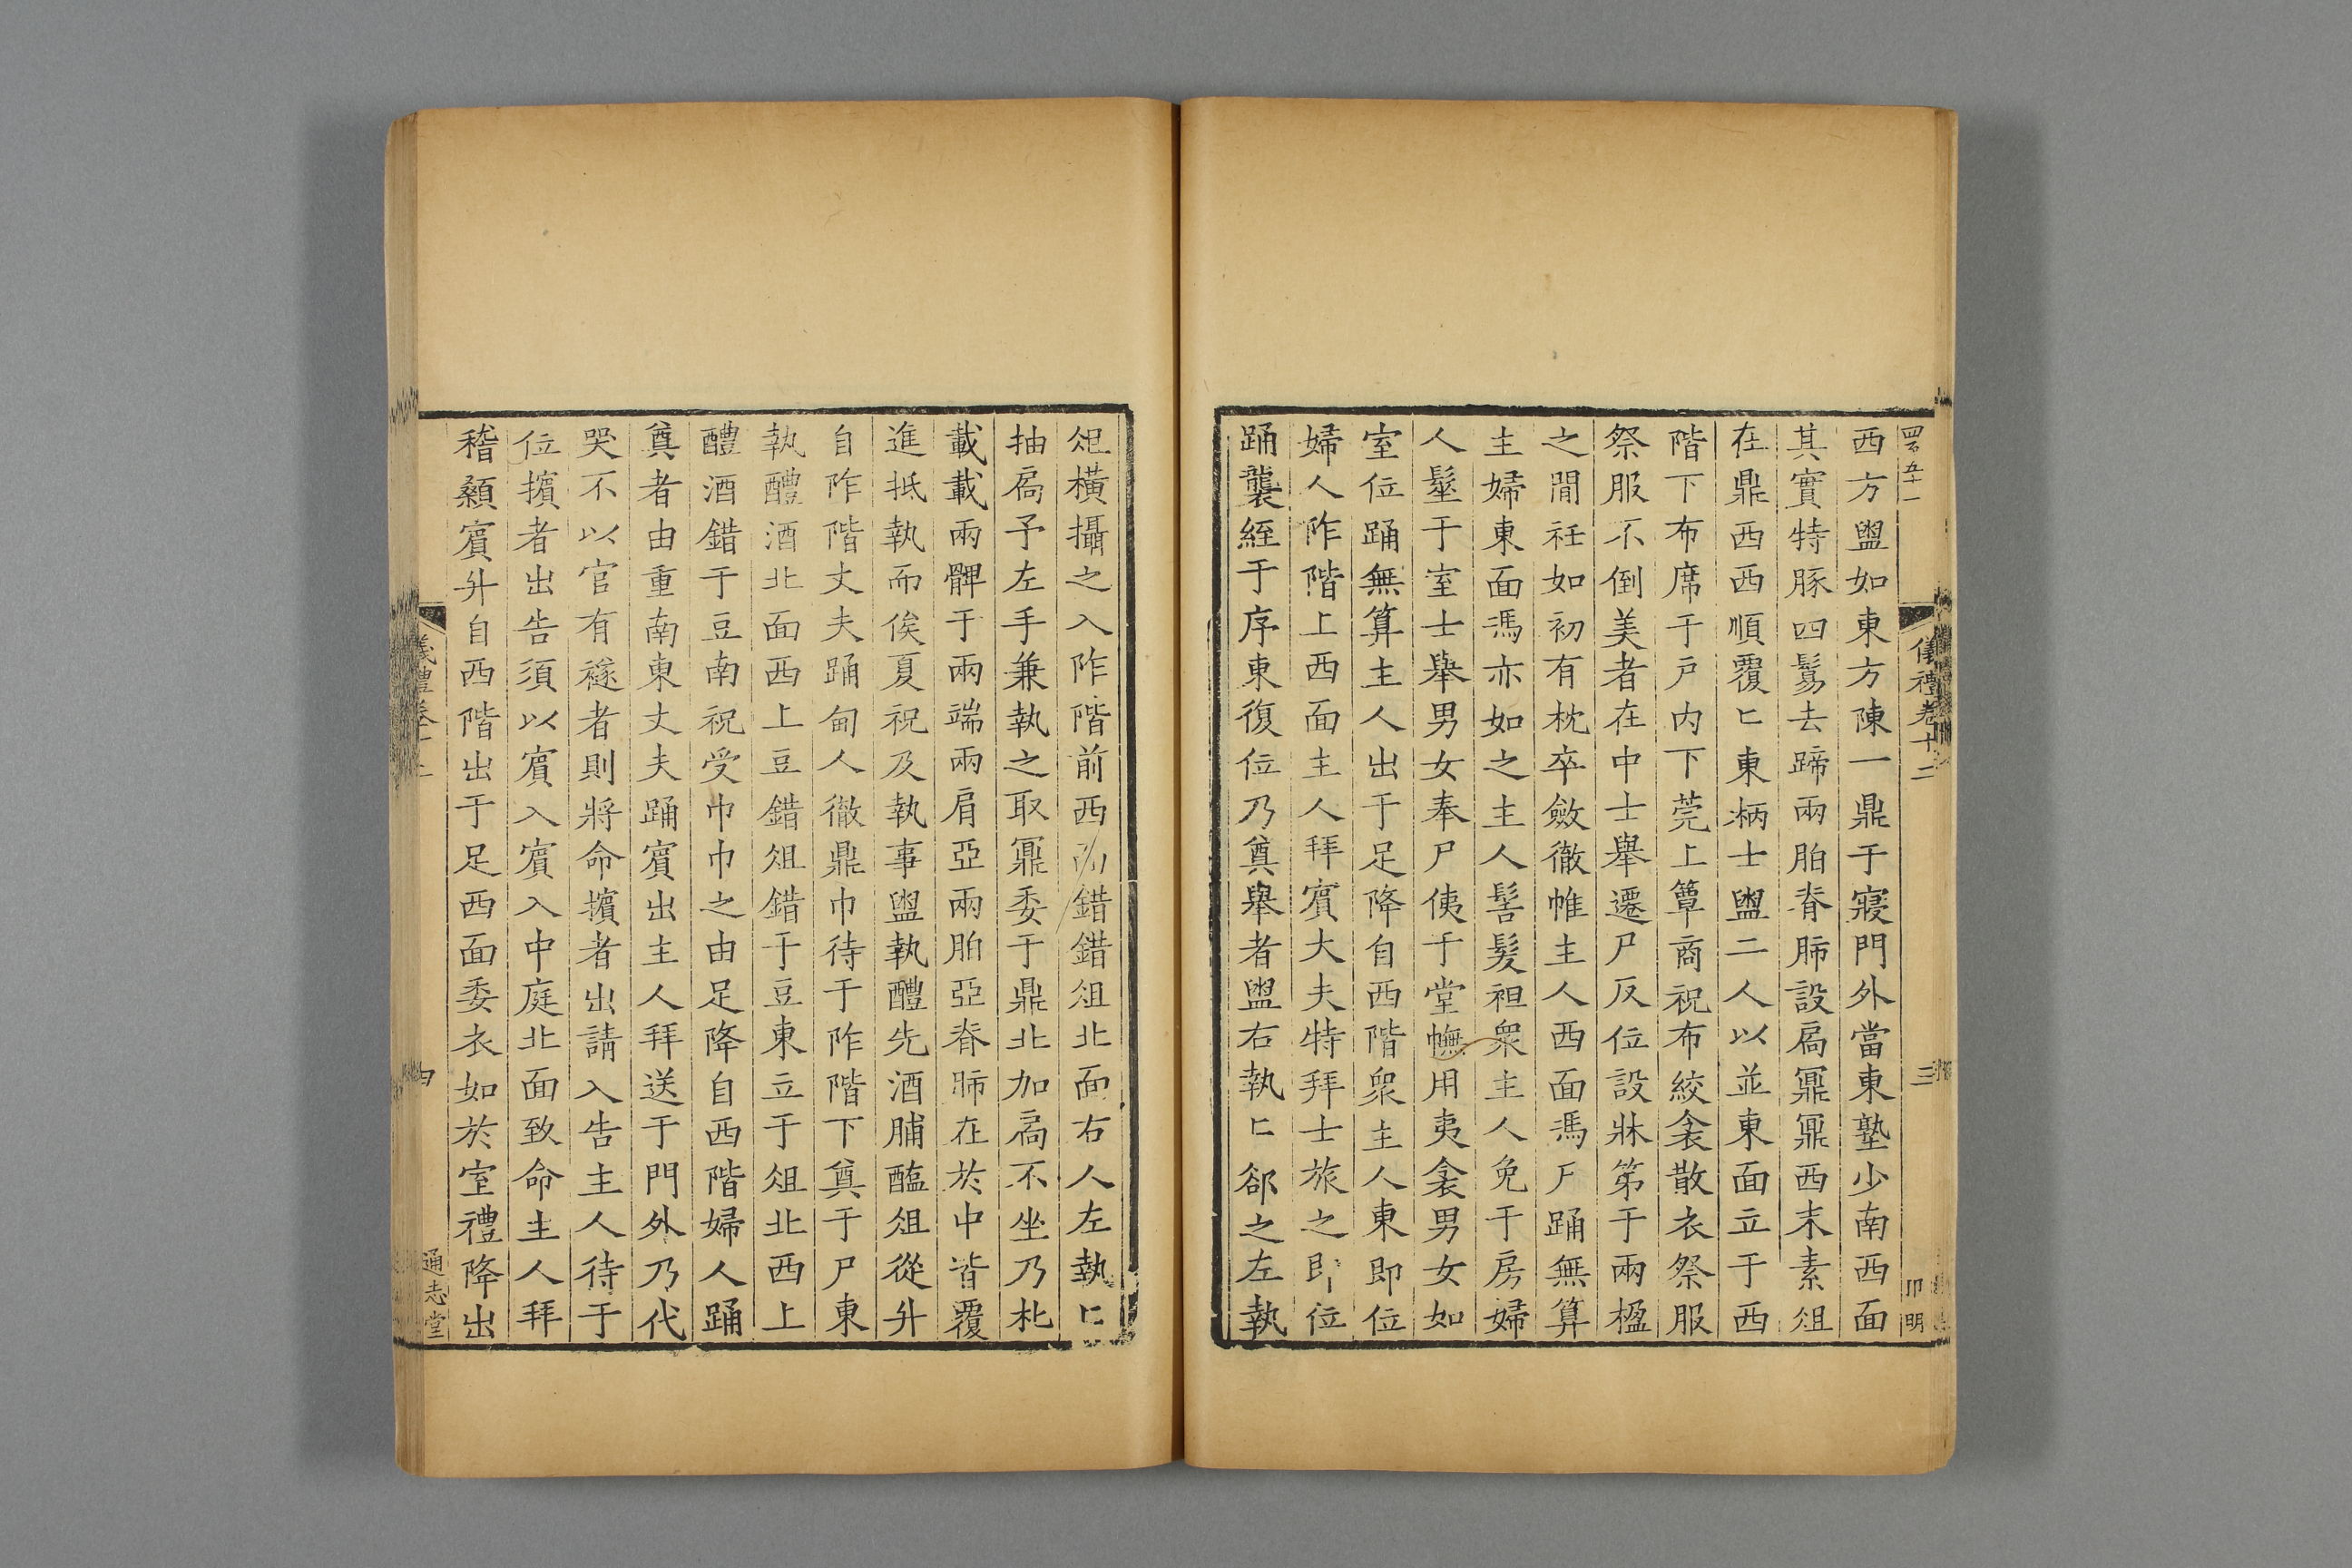 四百五十一
儀禮卷十二
三
卬明
西方盥如東方陳一鼎于寢門外當東塾少南西面
其實特豚四鬄去蹄兩胉脊肺設扃鼏鼏西末素俎
在鼎西西順覆匕東柄士盥二人以並東面立于西
階下布席于戶內下莞上簟商祝布絞衾散衣祭服
祭服不倒美者在中士舉遷尸反位設牀笫于兩楹
之間衽如初有枕卒斂徹帷主人西面馮尸踊無算
主婦東面馮亦如之主人髻髮袒眾主人免于房婦
人髽于室士舉男女奉尸侇于堂幠用夷衾男女如
室位踊無算主人出于足降自西階眾主人東即位
婦人阼階上西面主人拜賓大夫特拜士旅之即位
踊襲絰于序東復位乃奠舉者盥右執匕郤之左執
俎橫攝之入阼階前西錯錯俎北面右人左執匕
抽扃予左手兼執之取鼏委于鼎北加扃不坐乃朼
載載兩髀于兩端兩肩亞兩胉亞脊肺在於中皆覆
進柢執而俟夏祝及執事盥執醴先酒脯醢俎從升
自阼階丈夫踊甸人徹鼎巾待于阼階下奠于尸東
執醴酒北面西上豆錯俎錯于豆東立于俎北西上
醴酒錯于豆南祝受巾巾之由足降自西階婦人踊
奠者由重南東丈夫踊賓出主人拜送于門外乃代
哭不以官有襚者則將命擯者出請入告主人待于
位擯者出告須以賓入賓入中庭北面致命主人拜
稽顙賓升自西階出于足西面委衣如於室禮降出
儀禮卷十二
四
通志堂